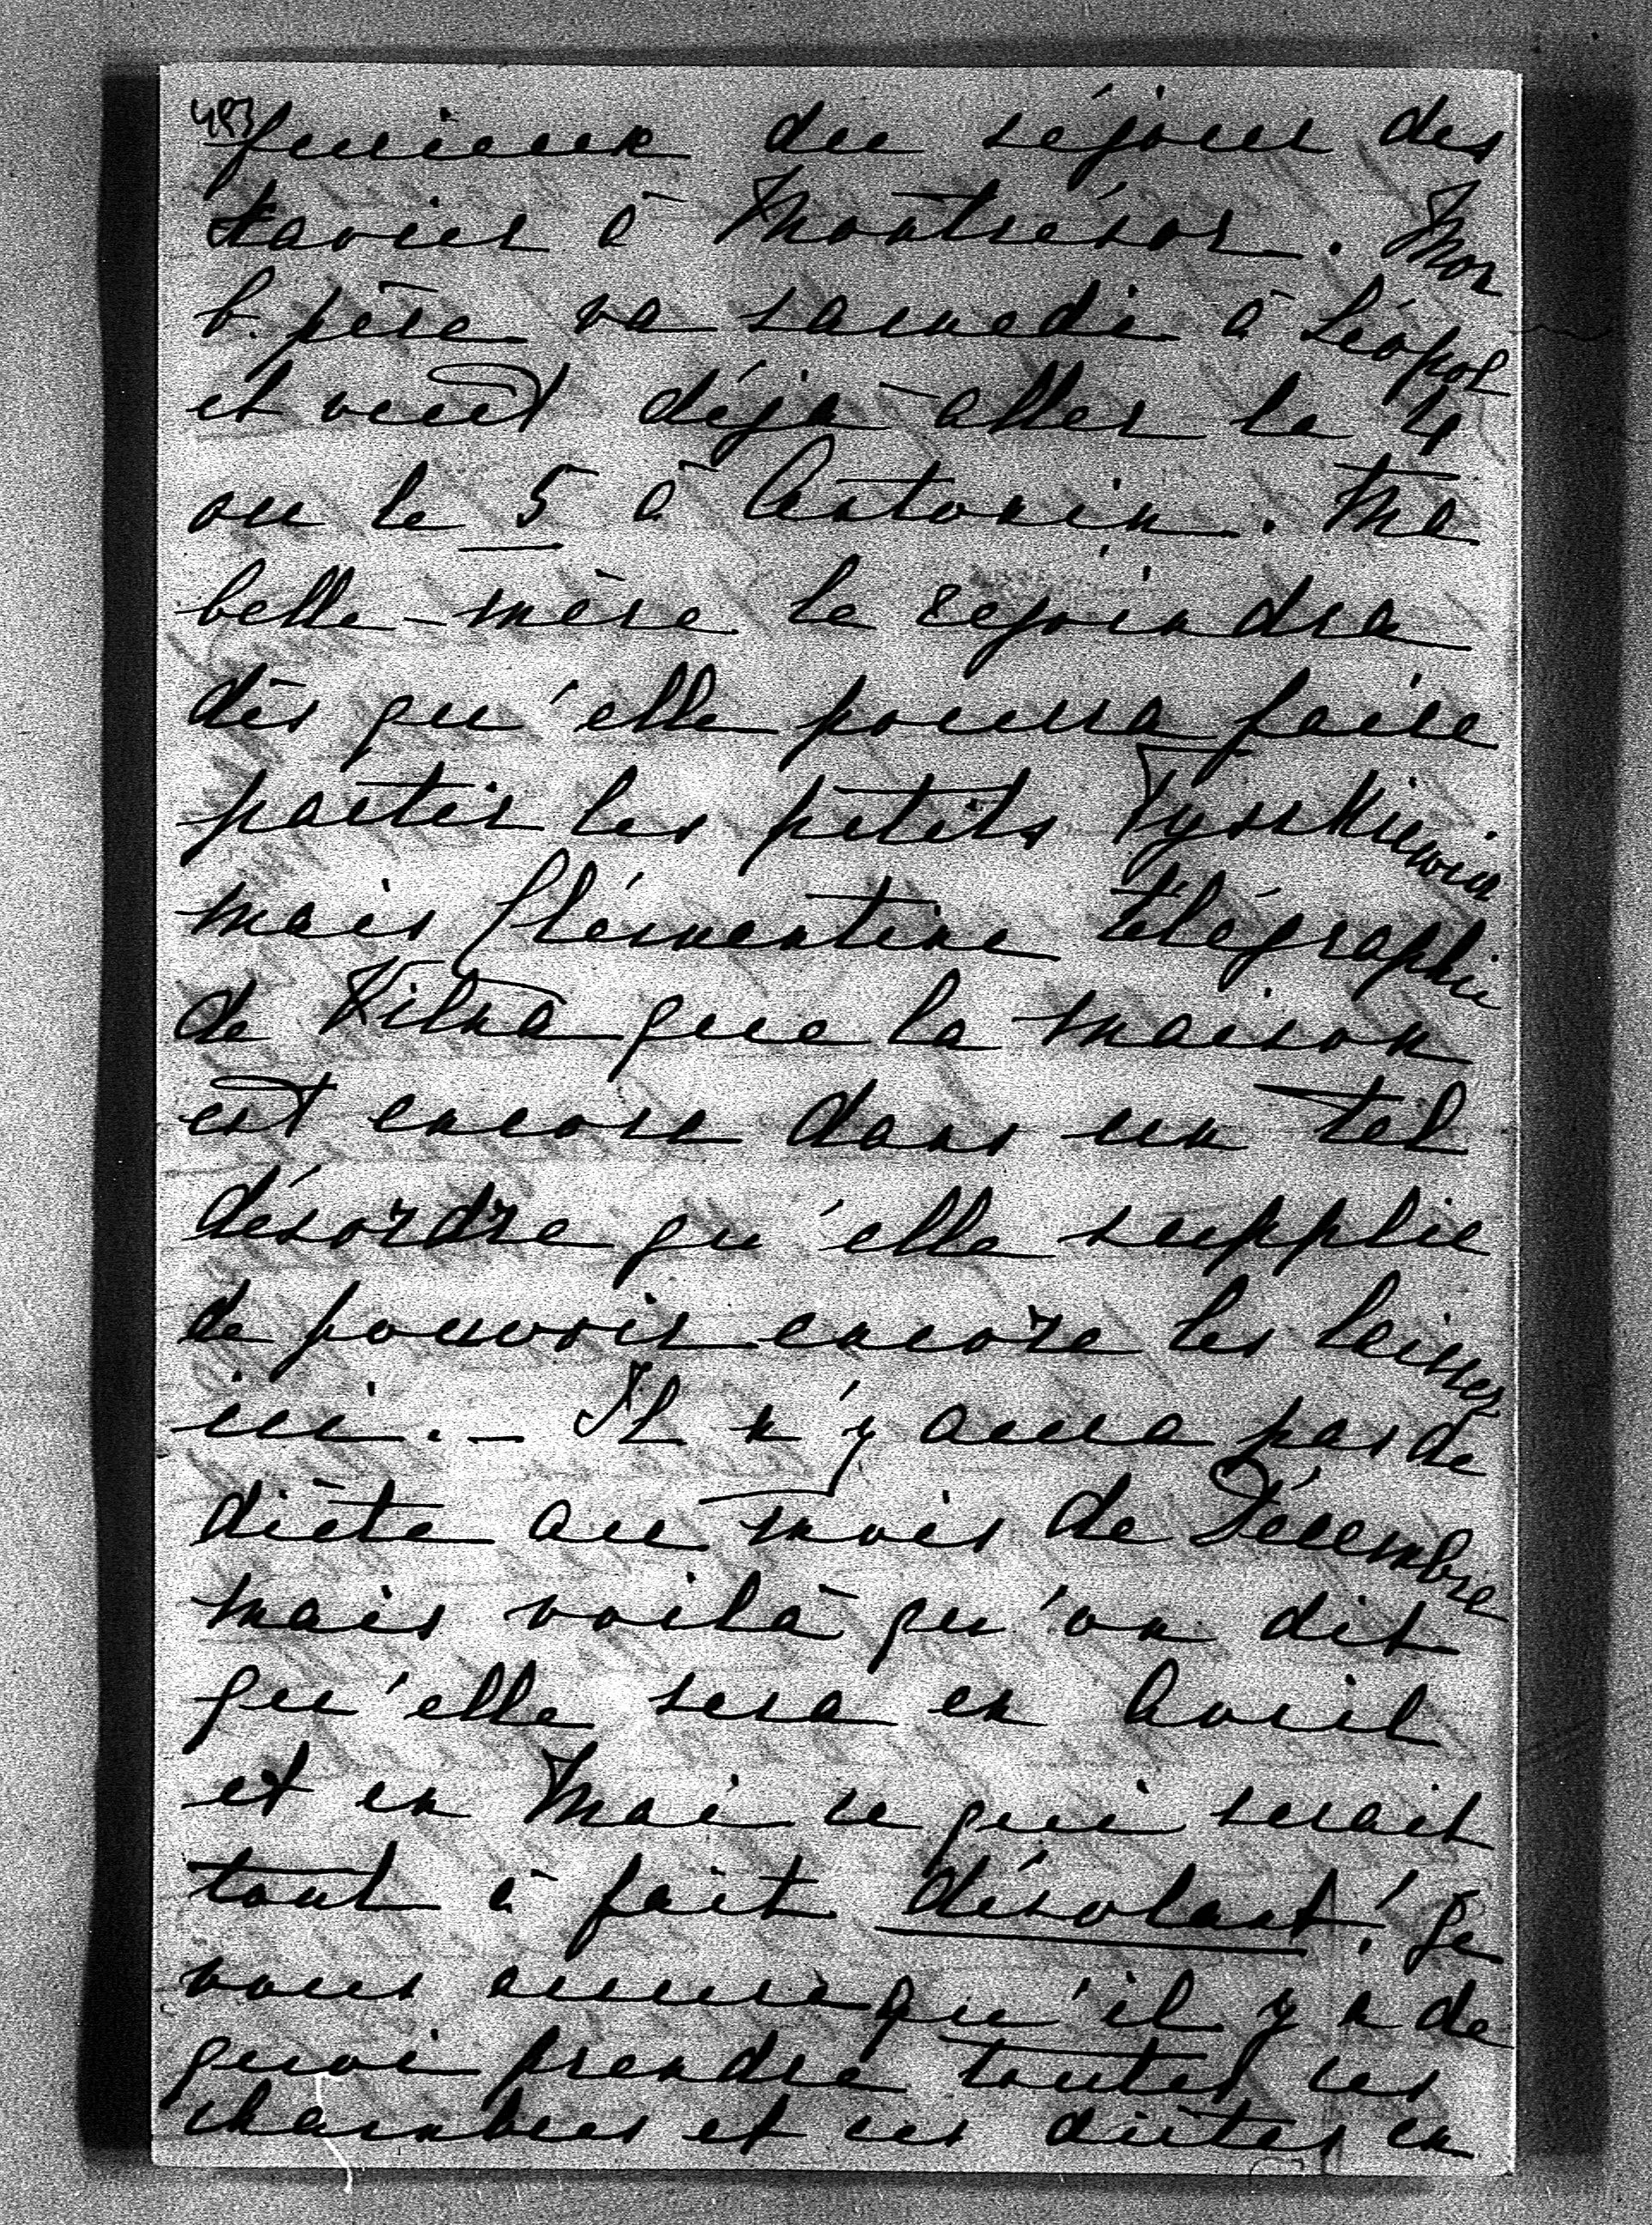 483
furieux du séjour des
Xavier à Montrésor. Mon
b. père va samedi à Léopol
et veut déjà aller le 4
ou le 5 à Antonin. Ma
belle-mère le rejoindra
dès qu'elle pourra faire
partir les petits Tyszkiewicz
mais Clémentine télégraphie
de Vilna que la maison
est encore dans un tel
désordre qu'elle supplie
de pouvoir encore les laisser
ici. - Il n'y aura pas de
diète au mois de Décembre
mais voilà qu'on dit
qu'elle sera en Avril
et en Mai ce qui serait
tout à fait désolant! Je
vous assure qu'il y a de
quoi prendre toutes ces
chambres et ces diètes en